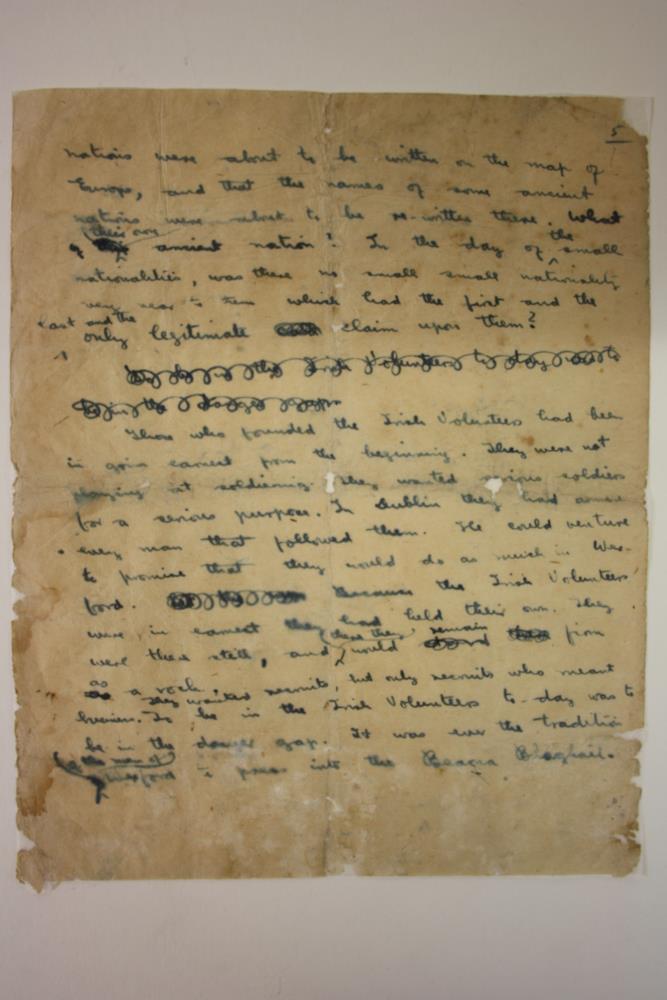 5
nations were about to be written on the map of
Europe, and that the names of some ancient
nations were about to be re-written there. What
of their own ancient nation? In the day of the small
nationalities, was there no small small nationality
very near to them which had the first and the
last and the only legitimate claim upon them?
To be in the Irish Volunteers to-day was to
be in the danger gap.
Those who founded the Irish Volunteers had been
in grim earnest from the beginning. They were not
playing at soldiering. They wanted serious soldiers
for a serious purpose. In Dublin they had armed
every man that followed them. He could venture
to promise that they would do as much in Wex-
ford. Because the Irish Volunteers
were in earnest they had held their own. They
were there still, and there they would remain firm
as a rock. They wanted recruits, but only recruits who meant
business. To be in the Irish Volunteers to-day was to
be in the danger gap. It was ever the tradition
of the men of Wexford to press into the Bearna Baoghail.